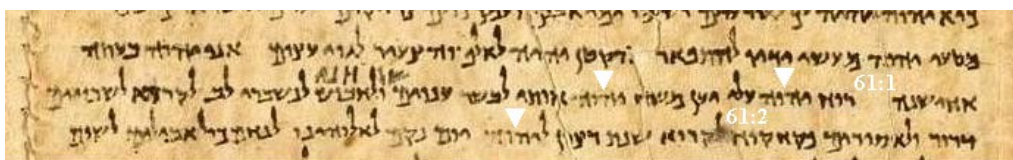 מטעי יהוה מעשי ידיו להתפאר הקטן יהיה לאלף והצעיר לגוי עצום אני יהוה בעתה
שלחני
אחישנה רוח יהוה עלי יען משח יהוה אותי לבשר ענוים ולחבוש לנשברי לב לקרוא לשבויים 61:1
דרור ולאסורים פקח קוח לקרוא שנת רצון ליהוה יום נקם לאלוהינו לנחם כול אבלים לשום 61:2